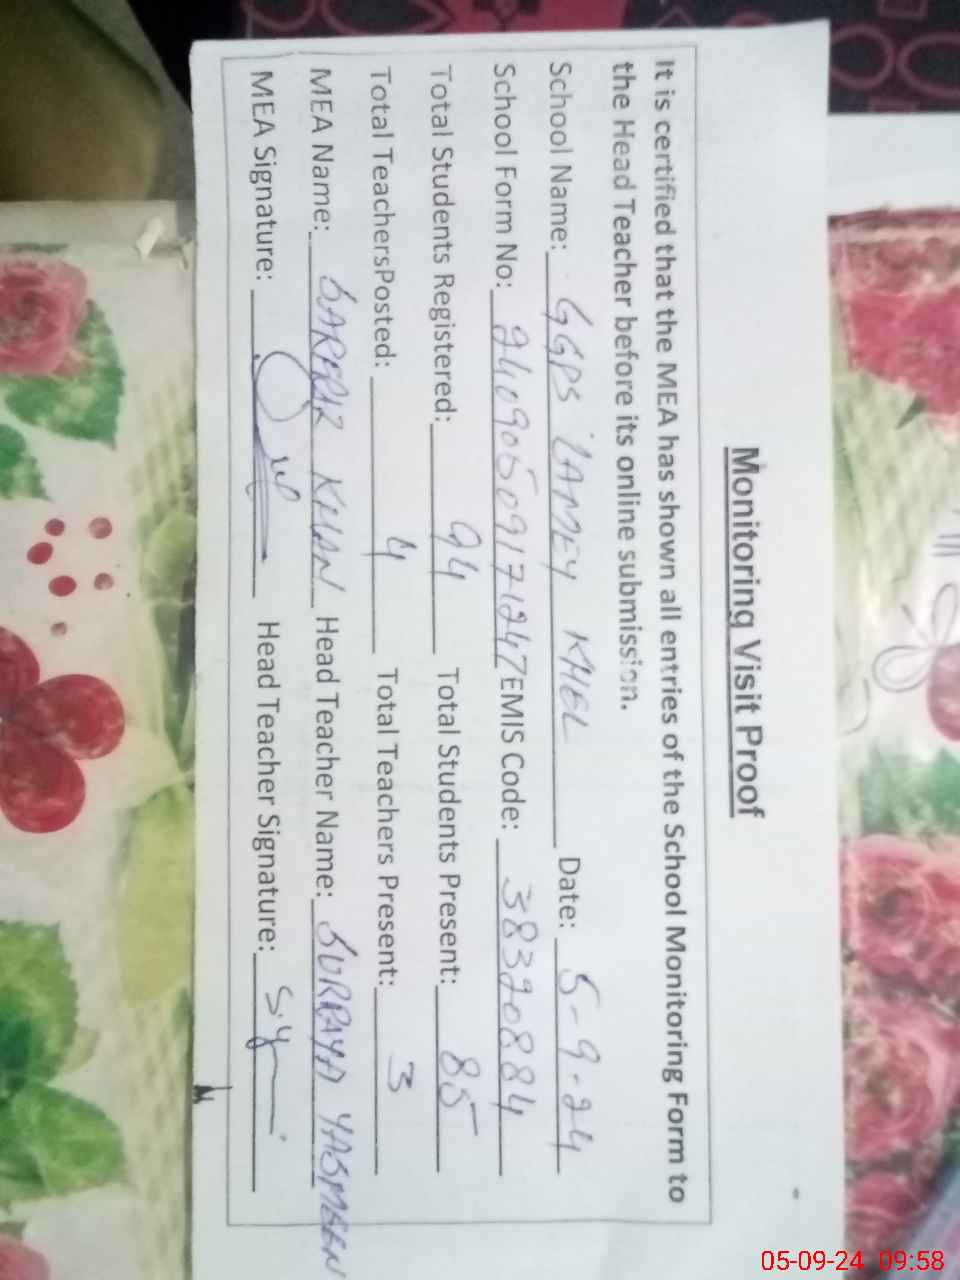 Monitoring Visit Proof
It is certified that the MEA has shown all entries of the School Monitoring Form to
the Head Teacher before its online submission.
School Name: GGPS LAMEY KHEL Date: 5-9-24
School Form No: 24090509171247 EMIS Code: 38320884
Total Students Registered: 94 Total Students Present: 85
Total TeachersPosted: 4 Total Teachers Present: 3
MEA Name: SARFRAZ KHAN Head Teacher Name: SURRAYA YASMEEN
MEA Signature: Head Teacher Signature:
05-09-24 09:58